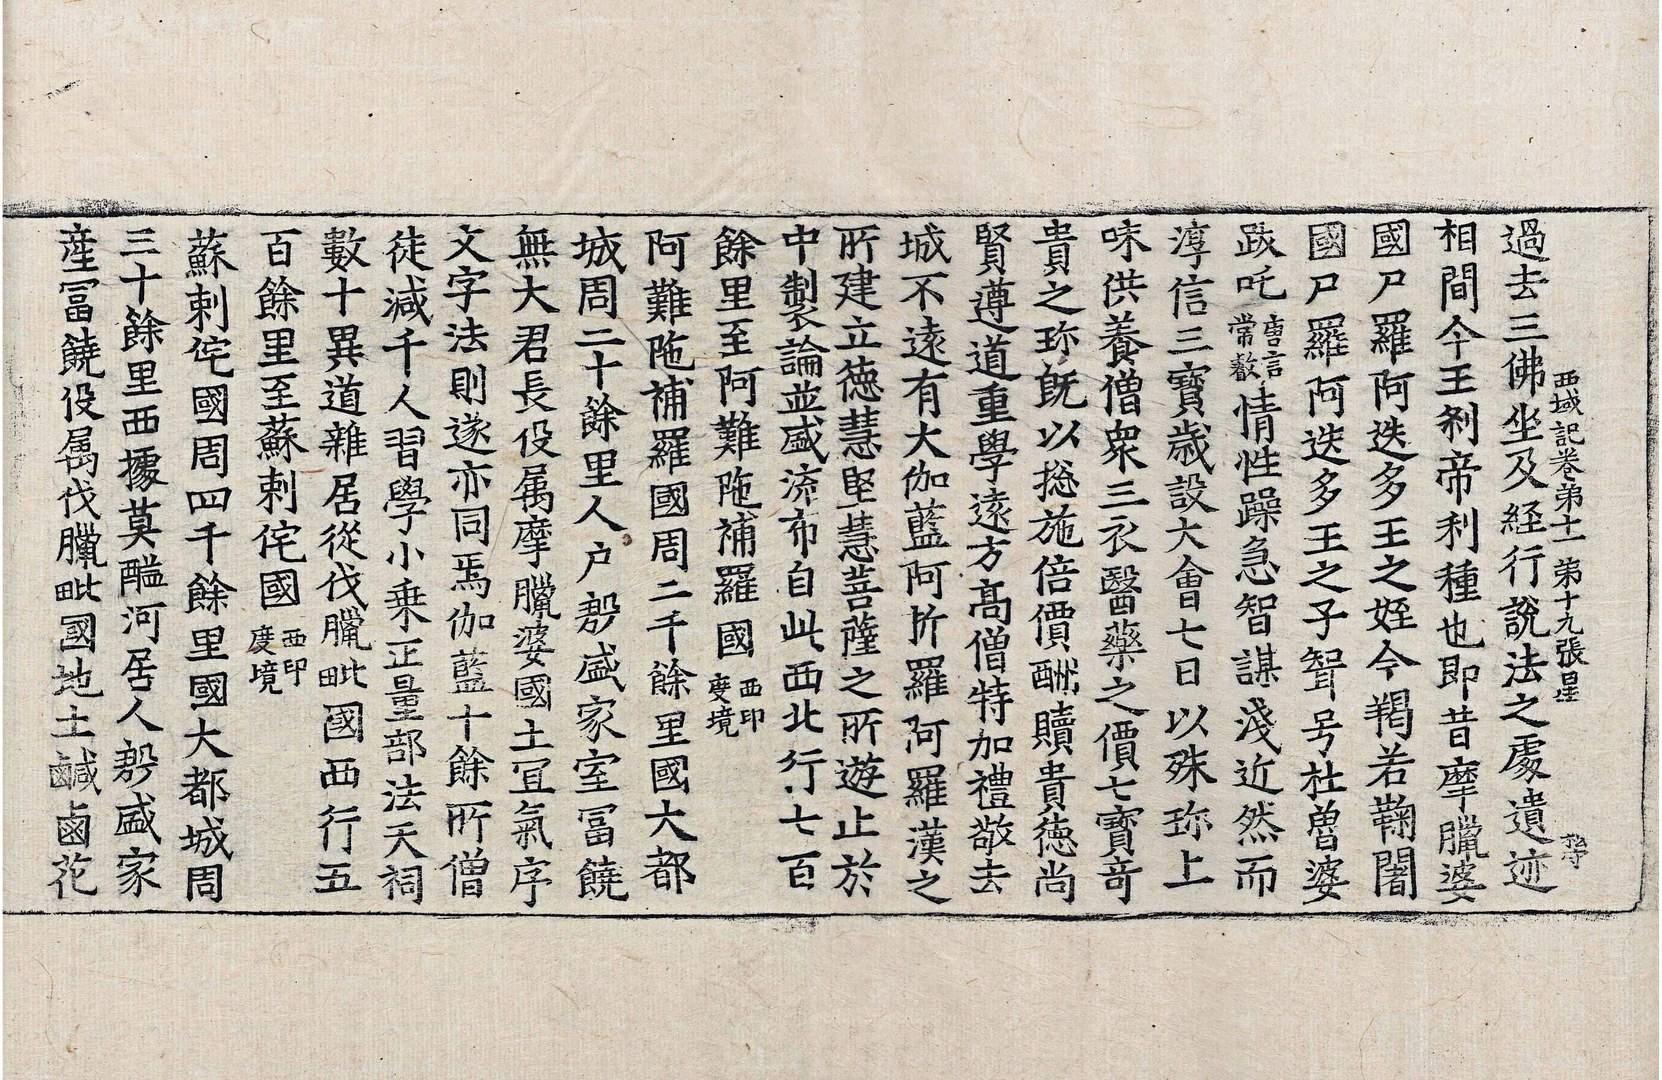 西域記卷苐十一 苐十九張 星
過去三佛坐及経行說法之處遺迹
相間今王刹帝利種也即昔摩臘婆
國尸羅阿迭多王之姪今羯若鞠闍
國尸羅阿迭多王之子聟号杜魯婆
跋吒唐言常叡情性躁急智謀淺近然而
淳信三寶歲設大會七日以殊珎上
味供養僧衆三衣醫藥之價七寶奇
貴之珎旣以捴施倍價酬贖貴德尚
賢遵道重學遠方高僧特加禮敬去
城不遠有大伽藍阿折羅阿羅漢之
所建立德慧堅慧菩薩之所遊止於
中製論並盛流布自此西北行七百
餘里至阿難陁補羅國西印度境
阿難陁補羅國周二千餘里國大都
城周二十餘里人户殷盛家室冨饒
無大君長役属摩臘婆國土冝氣序
文字法則遂亦同焉伽藍十餘所僧
徒減千人習學小乗正量部法天祠
數十異道雜居從伐臘毗國西行五
百餘里至蘇剌侘國西印度境
蘇剌侘國周四千餘里國大都城周
三十餘里西㩀莫醯河居人殷盛家
産冨饒役属伐臘毗國地土鹹鹵花